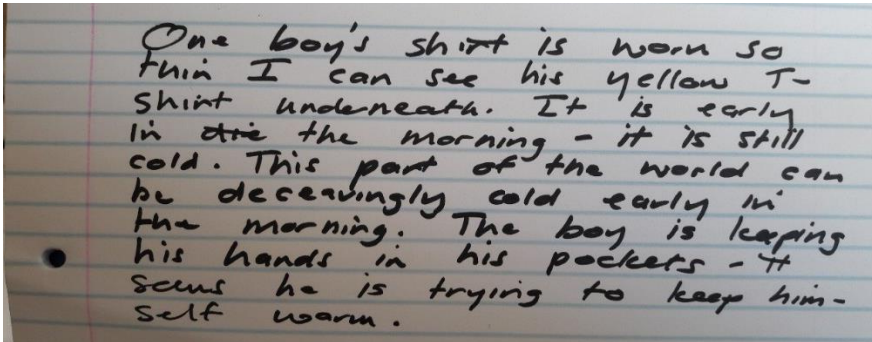 One boy's shirt is worn so
thin I can see his yellow T-
shirt underneath. It is early
in the the morning - it is still
cold. This part of the world can
be deceavingly cold early in
the morning. The boy is keeping
his hands in his pockets - it
seems he is trying to keep him-
self warm.